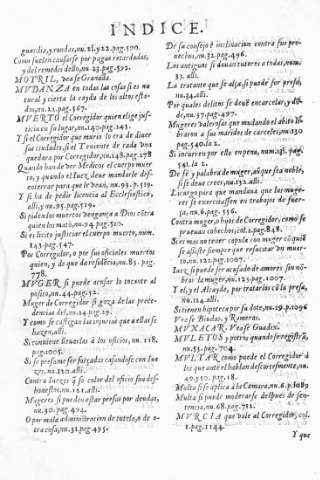 INDICE.
guardia, y rondas, nu. 28, y 22. pag. 500.
Como suelen causarse por pagas retardadas,
y del remedio dello, nu. 23. pag. 592.
MOTRIL, vea se Granada.
MVDANZA en todas las cosas si es na
tural y cierta la cayda de los altos esta-
dos, nu. 21. pag. 567.
MVERTO el Corregidor quien elige justi-
cia en su lugar, nu. 140. pag. 243.
Y si el Corregidor que murio lo era de diuer
sas ciudades, si el Teniente de cada vna
quedara por Corregidor, nu. 148. pag. 278
Quando han de ver Medicos el cuerpo muer
to, y quando el Iuez, deue mandarle desen-
terrar para que le vean, nu. 93. p. 519.
Y si ha de pedir licencia al Ecclesiastico,
alli, nu. 95. pag. 519.
Si piden los muertos vengança a Dios cõtra
quien los mato, nu. 74. pag. 510.
Si es licito justiciar el cuerpo muerto, num.
143. pag. 547.
Por Corregidor, o por sus oficiales muertos
quien, y de que da residẽcia, nu. 85. pag.
778.
MVGER si puede acusar lo tocante al
posito, nu. 44. pag. 52.
Muger de Corregidor si goza de las prece-
dencias del, nu. 14. pag. 29.
Y como se castigan las injurias que a ellas se
hazen, alli.
Si conuiene lleuarlas à los oficios, nu. 118.
pag. 1005.
Si se presume ser forçadas casandose con Iue
zes, nu. 120. alli.
Contra Iuezes q̃ so color del oficio son des-
honestos, nu. 121. alli.
Mugeres si pueden estar presas por deudas,
nu. 50. pag. 494.
O por mala administracion de tutela, o de o-
tra cosa, nu. 51. pag. 495.
De su consejo è inclinacion contra sus pro-
uechos, nu. 32. pag. 496.
Las antiguas si dauan tutores a todas, num.
33. alli.
La tratante que se alça, si puede ser presa,
nu. 34. alli.
Por quales delitos se deuẽ encarcelar, y dõ-
de, nu. 37. pag. 497.
Mugeres valerosas que mudando el abito li-
braron a sus maridos de carceles, nu. 130
pag. 540. lo 2.
Si incurren por ello en pena, num. 131. pag.
541. lo 2.
De fè y palabra de muger, aũ que sea noble,
si se deue creer, nu. 132. alli.
Licurgo para que mandaua que las muge-
res se exercitassen en trabajos de fuer-
ça, nu. 6. pag. 556.
Contra muger, o hijos de Corregidor, como se
prueuan cohechos, col. 2. pag. 848.
Si es mas no tener copula con muger cõ quiẽ
se assiste siempre que resucitar vn muer-
to, nu. 122. pag. 1007.
Iuez, si puede ser acusado de amores sin nõ-
brar la muger, nu. 125. pag. 1007.
Y el, y el Alcayde, por tratarlos cõ la presa,
nu. 124. alli.
Si tienen hipoteca por su dote, nu. 19. p. 1096
Vea se Biudas, y Rameras.
MVNACAR. Vea se Guadix.
MVLETOS y potros quando se registrã,
nu. 53. pag. 704.
MVLTAR como puede el Corregidor à
los que ante el hablan descortesmente, nu.
49. y 50. pag. 18.
Multa si se aplica à la Camara, nu. 6. p. 1089
Multa si puede moderarse despues de sen-
tencia, nu. 68. pag. 712.
MVRCIA que vale al Corregidor, col.
1. pag. 1144.
Y que